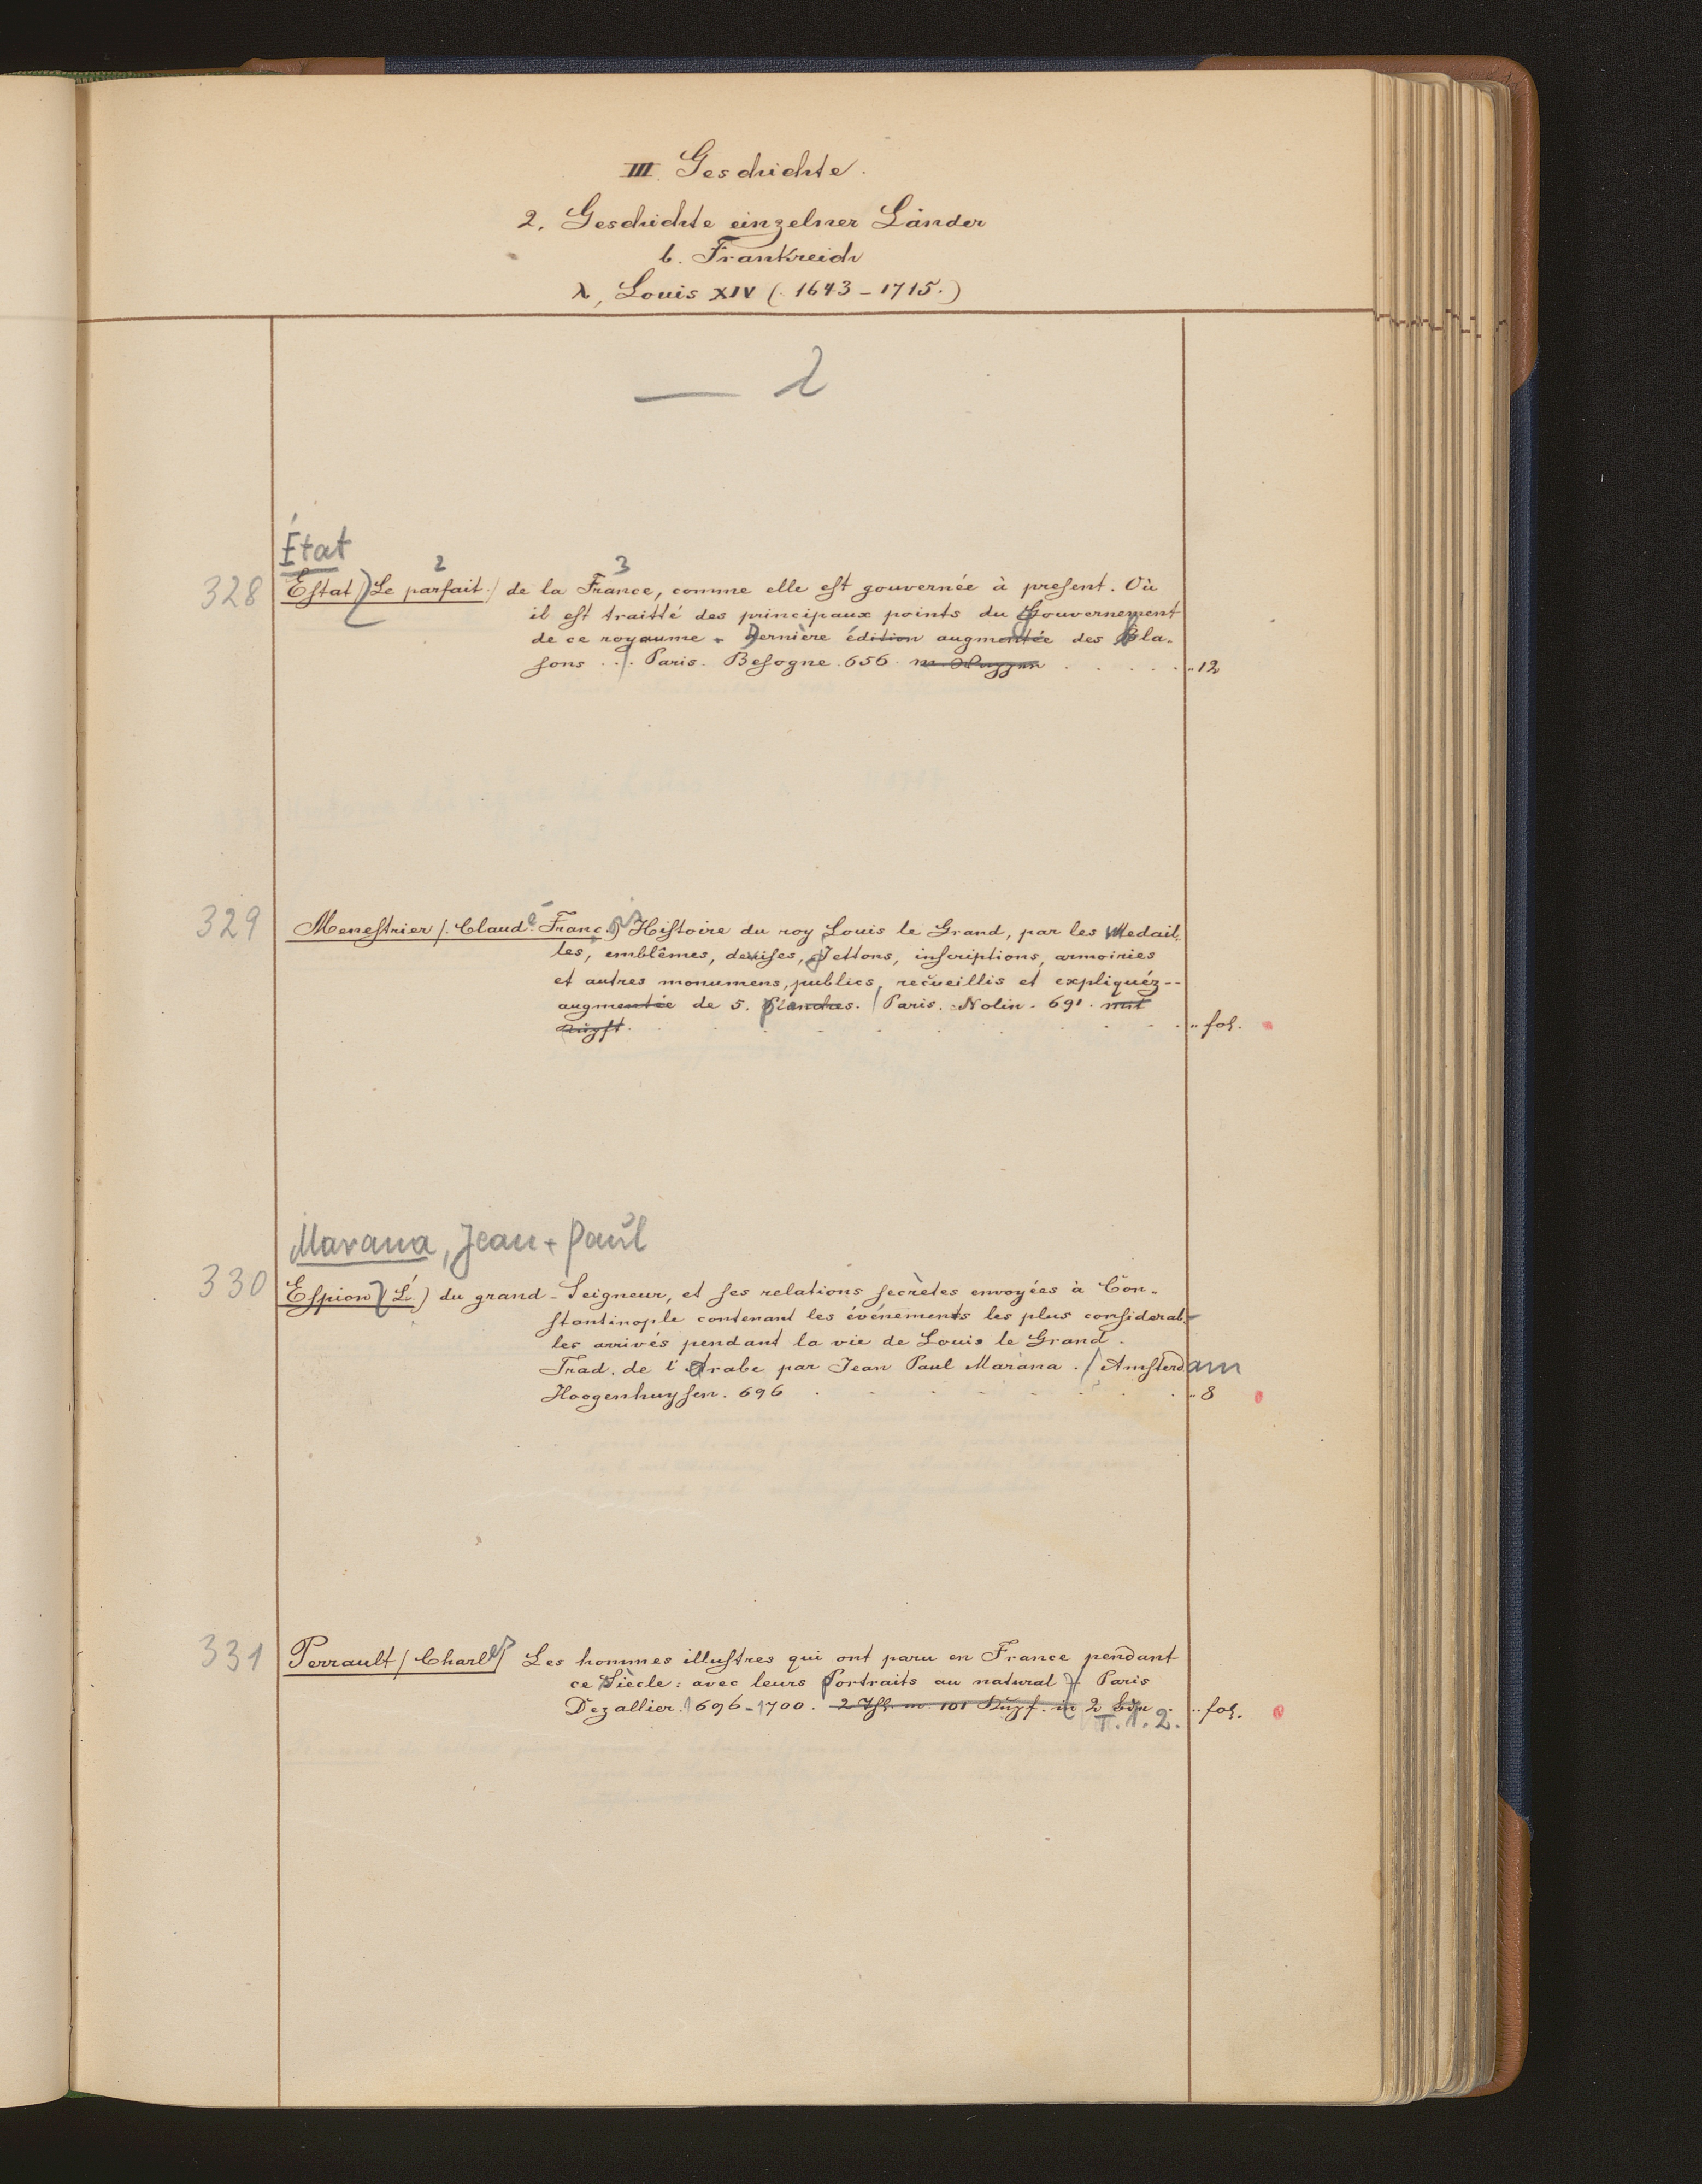 III. Geschichte.
2. Geschichte einzelner Länder
b. Frankreich
λ, Louis XIV (1643-1715.)
— λ
État
2 3
328 Eſtat (Le parfait) de la France, comme elle eſt gouvernée à preſent. Où
il eſt traitté des principaux points du Gouvernement
de ce royaume. Dernière édition augmentée des Bla-
ſons ... Paris. Beſogne. 656. ..12
329 Meneſtrier (Claude Franc.) Hiſtoire du roy Louis le Grand, par les Medail-
les, emblêmes, deviſes, Jettons, inſcriptions, armoiries
et autres monumens, publics, recueillis et expliquéz --
augmentée de 5. planches. Paris. Nolin. 691. mit
.. fol.
Marana, Jean + Paul
330 Eſpion (L') du grand-Seigneur, et ſes relations ſecrètes envoyées à Con-
ſtantinople contenant les événements les plus considerab-
les arrivés pendant la vie de Louis le Grand.
Trad. de l'Arabe par Jean Paul Marana. Amſterdam
Hoogenhuyſen. 696 .. 8
331 Perrault (Charles) Les hommes illuſtres qui ont paru en France pendant
ce Siècle: avec leurs Portraits au natural. Paris
Dezallier. 1696-1700. 2 Thl. m. 101 Kupf. in 2 Bdn .. fol.
T. 1. 2.